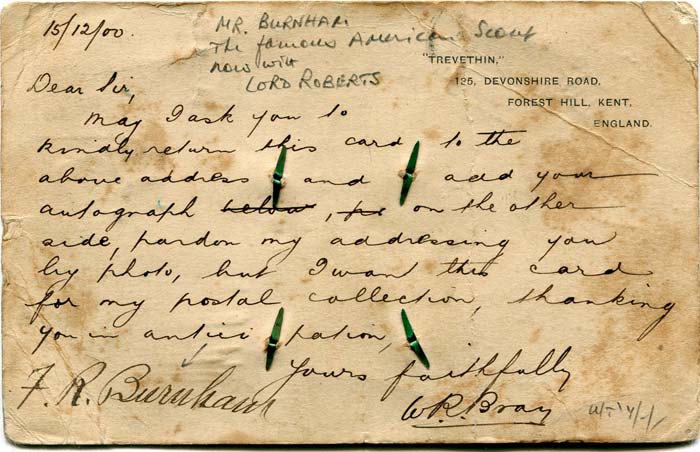 15/12/00.
MR. BURNHAM
The famous AMERICAN Scout
now with
LORD ROBERTS
"TREVETHIN,"
125, DEVONSHIRE ROAD,
FOREST HILL, KENT,
ENGLAND.
Dear Sir,
May I ask you to
kindly return this card to the
above address and add your
autograph below, on the other
side, pardon my addressing you
by photo, but I want this card
for my postal collection, thanking
you in antici pation,
Yours faithfully
F. R. Burnham
W.R. Bray